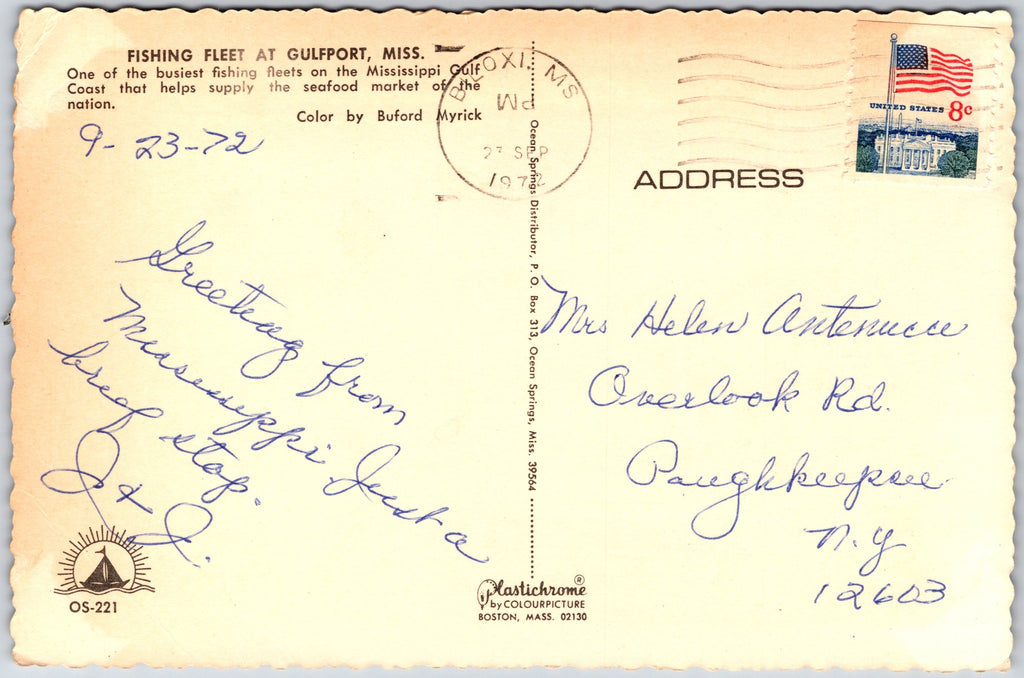 FISHING FLEET AT GULFPORT, MISS.
One of the busiest fishing fleets on the Mississippi Gulf
Coast that helps supply the seafood market of the
nation.
Color by Buford Myrick
9-23-72
Greeting from
Mississippi Just a
brief stop.
J & J.
OS-221
BILOXI, MS
PM
23 SEP
1972
Ocean Springs Distributor, P. O. Box 313, Ocean Springs, Miss. 39564
Plastichrome®
by COLOURPICTURE
BOSTON, MASS. 02130
UNITED STATES 8c
ADDRESS
Mrs Helen Antenucci
Overlook Rd.
Poughkeepsie
N.Y
12603